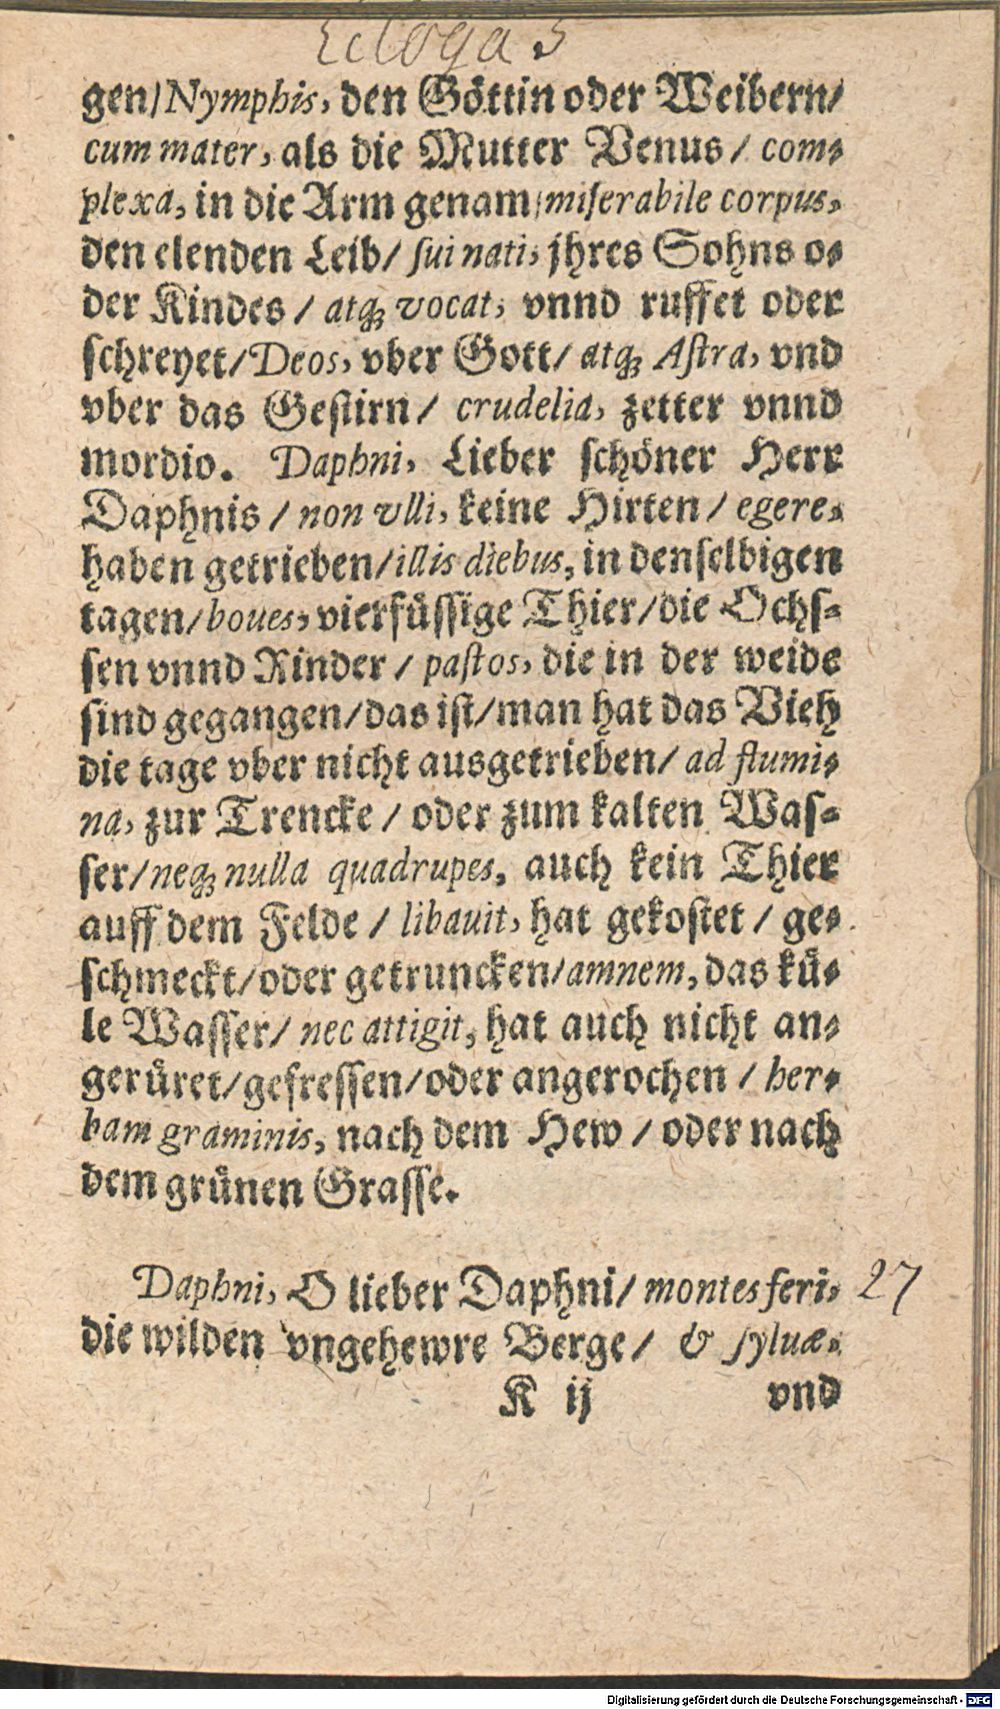 Ecloga 5
gen/Nymphis, den Göttin oder Weibern/
cum mater, als die Mutter Venus/ com-
plexa, in die Arm genam/miserabile corpus,
den elenden Leib/ sui nati, jhres Sohns o-
der Kindes / atq; vocat, vnnd ruffet oder
schreyet/Deos, vber Gott/ atq; Astra, vnd
vber das Gestirn/ crudelia, zetter vnnd
mordio. Daphni, Lieber schöner Herr
Daphnis / non vlli, keine Hirten / egere,
haben getrieben/illis diebus, in denselbigen
tagen/boues, vierfüssige Thier/die Ochs-
sen vnnd Rinder / pastos, die in der weide
sind gegangen/das ist/man hat das Vieh
die tage vber nicht ausgetrieben/ ad flumi-
na, zur Trencke / oder zum kalten Was-
ser/neq; nulla quadrupes, auch kein Thier
auff dem Felde / libauit, hat gekostet / ge-
schmeckt/oder getruncken/amnem, das kü-
le Wasser/ nec attigit, hat auch nicht an-
gerüret/gefressen/oder angerochen / her-
bam graminis, nach dem Hew / oder nach
dem grünen Grasse.
Daphni, O lieber Daphni/ montes feri, 27
die wilden vngehewre Berge/ & syluæ,
K ij vnd
Digitalisierung gefördert durch die Deutsche Forschungsgemeinschaft - DFG